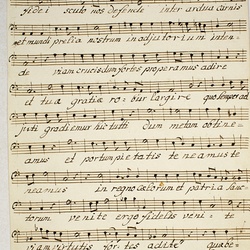 fidei scuto nos defende inter ardua carnis
et mundi prelia nostrum in adjutorium inten-
de viam crucis dum fortes properamus adire
et tua gratia robur largire quo semper ad
juti gradiemur hic tutti dum metam obtine-
amus et portum pietatis teneamus te
neamus in regno caelorum et patria sanc-
torum venite ergo fideles veni te
viam virtutis fortes adite quabe-